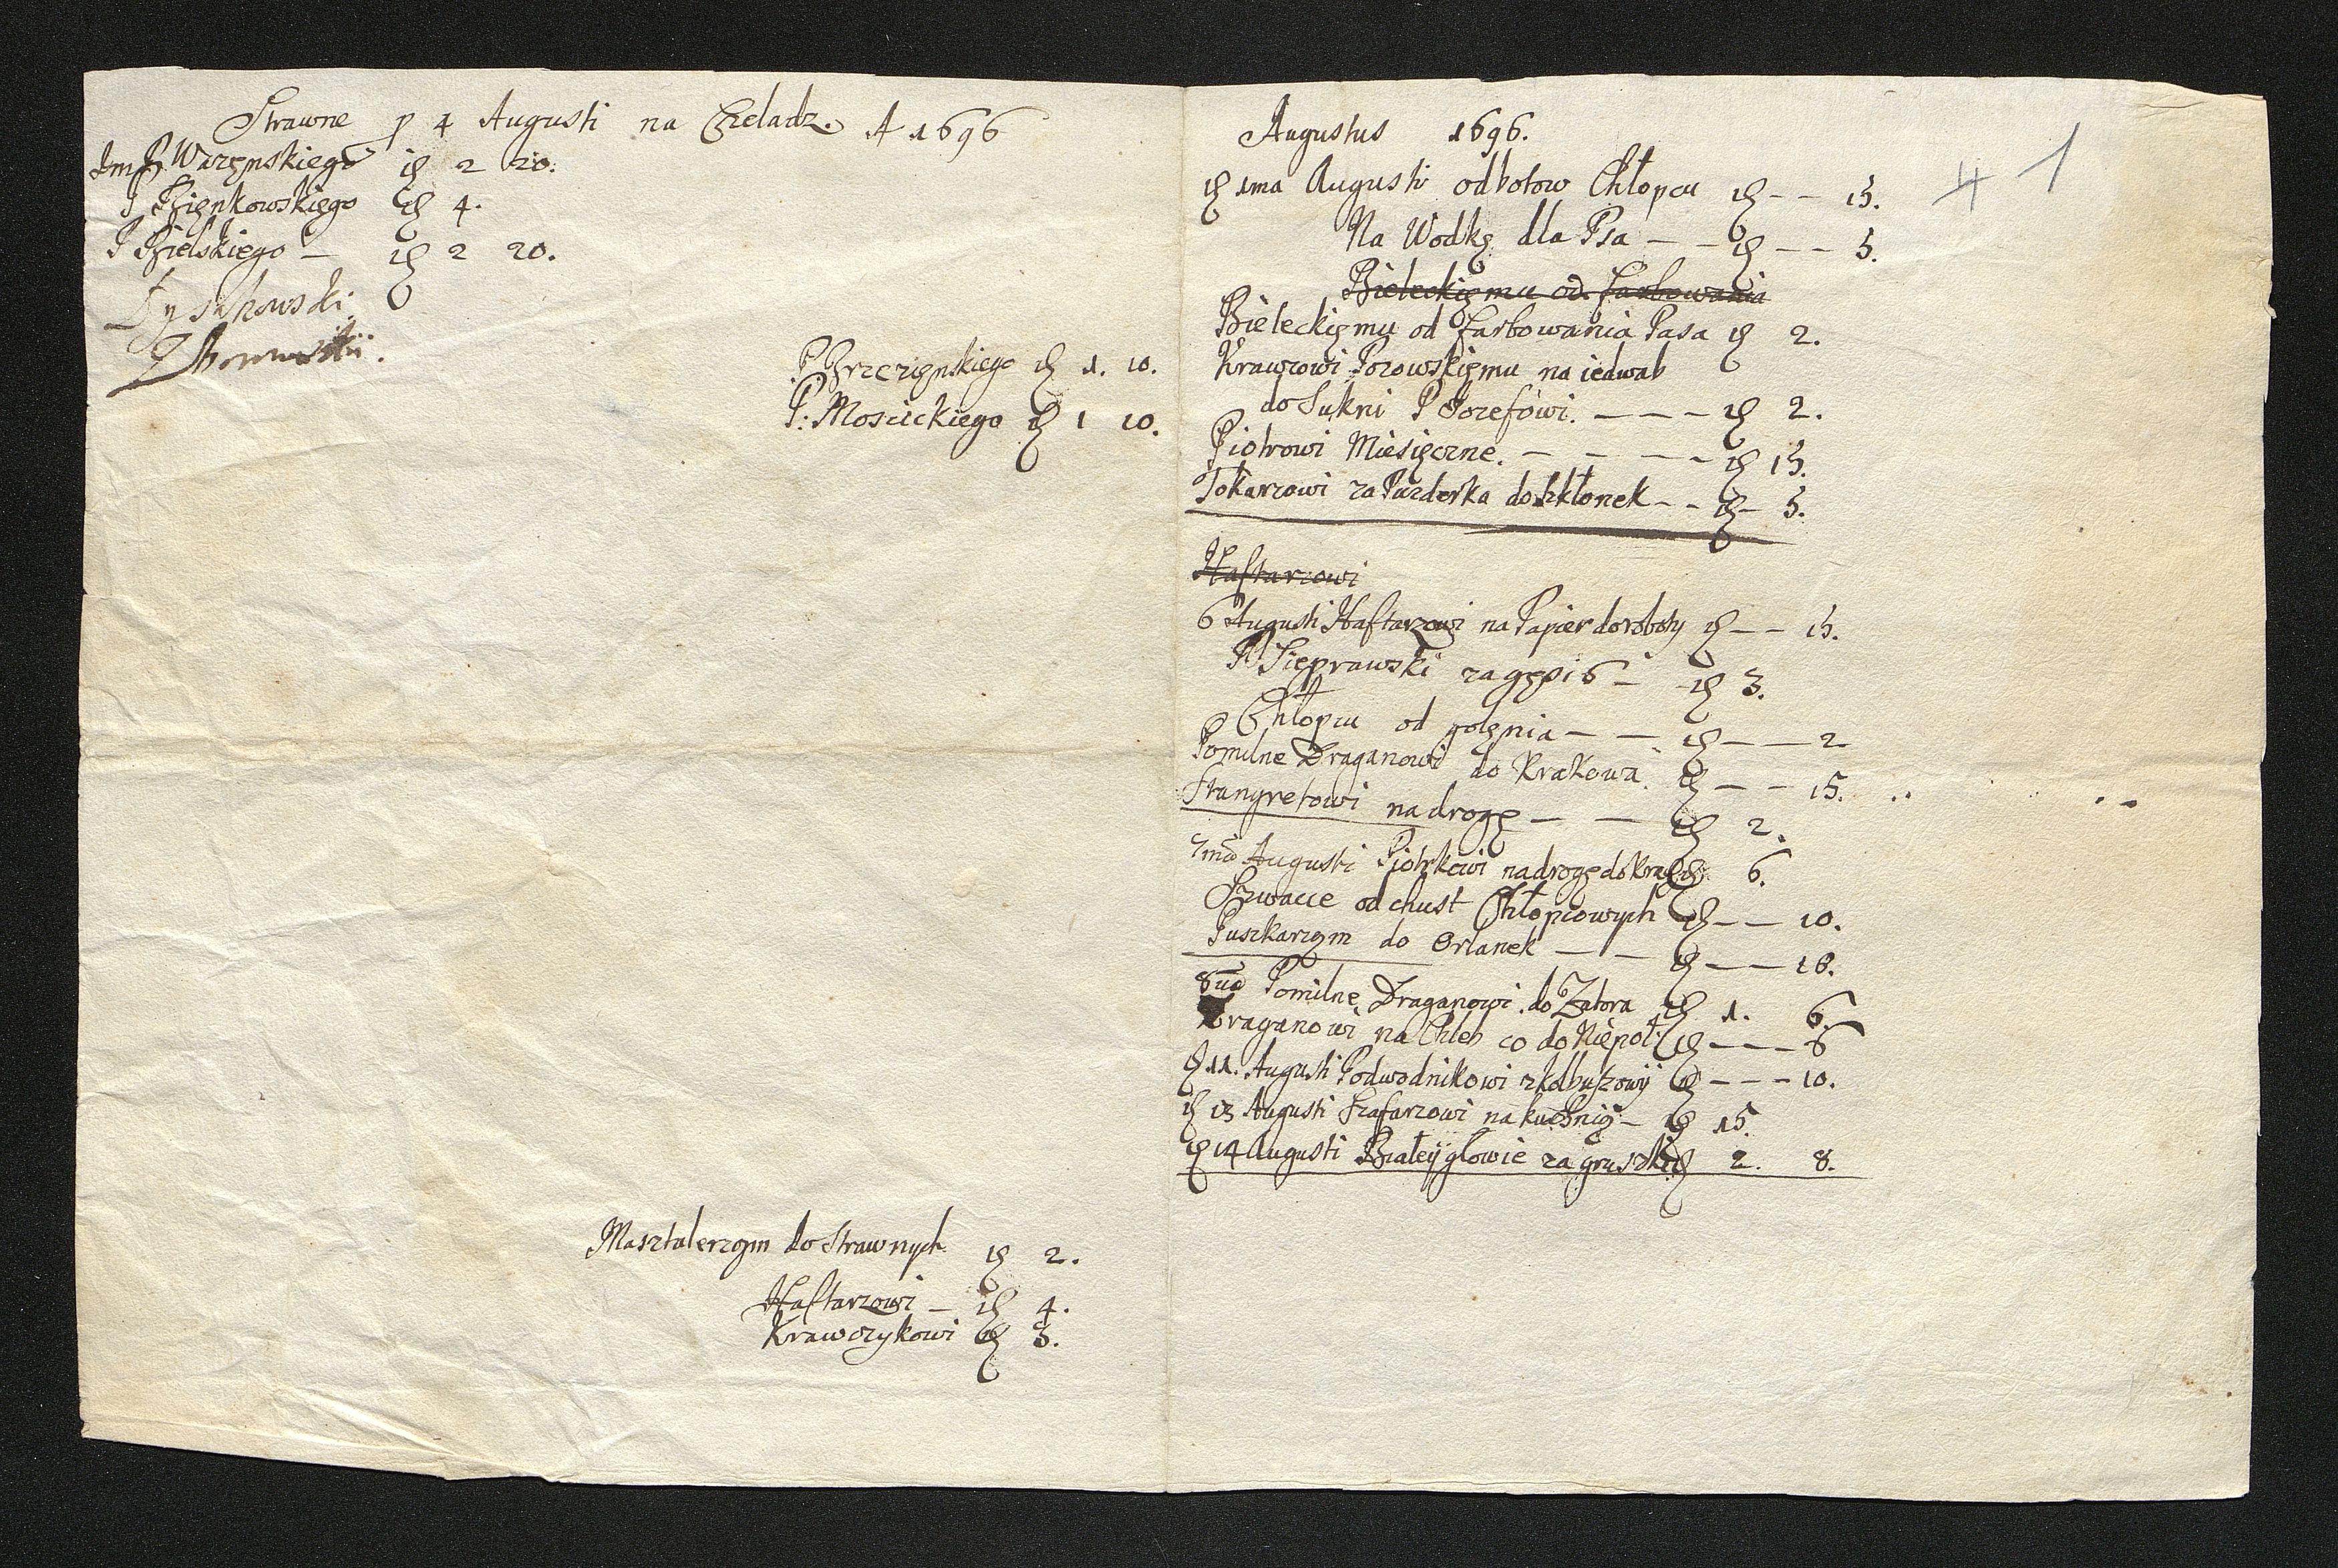 Strawne p 4 Augusti na Czeladz. A 1696
JmP Warzynskiego fl 2 20.
P Bięnkowskięgo fl 4.
P Bielskięgo — fl 2 20.
P Brzezięnskiego fl 1. 10.
P: Moscickiego fl 1 10.
Masztalerzom do strawnych fl 2.
Haftarzowi — fl 4.
Krawczykowi fl 3.
Augustus 1696.
4 1
fl 1ma Augusti od botow Chłopcu fl - - 15.
Na Wodkę dla Psa — — fl — — 5.
Bieleckięmu od farbowania
Bieleckięmu od farbowania Pasa fl 2.
Krawcowi Pozowskięmu na iedwab
do Sukni P Jozefowi. — — — fl 2.
Piotrowi Miesięczne. — — — — fl 15.
Tokarzowi za Puzderka do szkłonek - - fl - 5.
Haftarzowi
6 Augusti Haftarzowi na Papier do roboty fl — — 15.
P Sieprawski za gępi 6 — fl 3.
Chłopcu od golęnia — — fl — — 2
Pomilne Draganowi do Krakowa fl — — 15.
Stangretowi na drogę — — fl 2.
7ma Augusti Piotrkowi na drogę do Krak fl 6.
Szwacce od chust Chłopcowych fl — — 10.
Puszkarzom do Orlanek — — fl — — 16.
8va Pomilne Draganowi do Zatora fl 1. 6.
Draganowi na Chleb co do Niepoł. fl — — — 6
fl 11. Augusti Podwodnikowi zkolbuszowy fl — — — 10.
fl 13 Augusti Szafarzowi na kuchnię — fl 15.
fl 14 Augusti Białeÿgłowie za gruszki fl 2. 8.